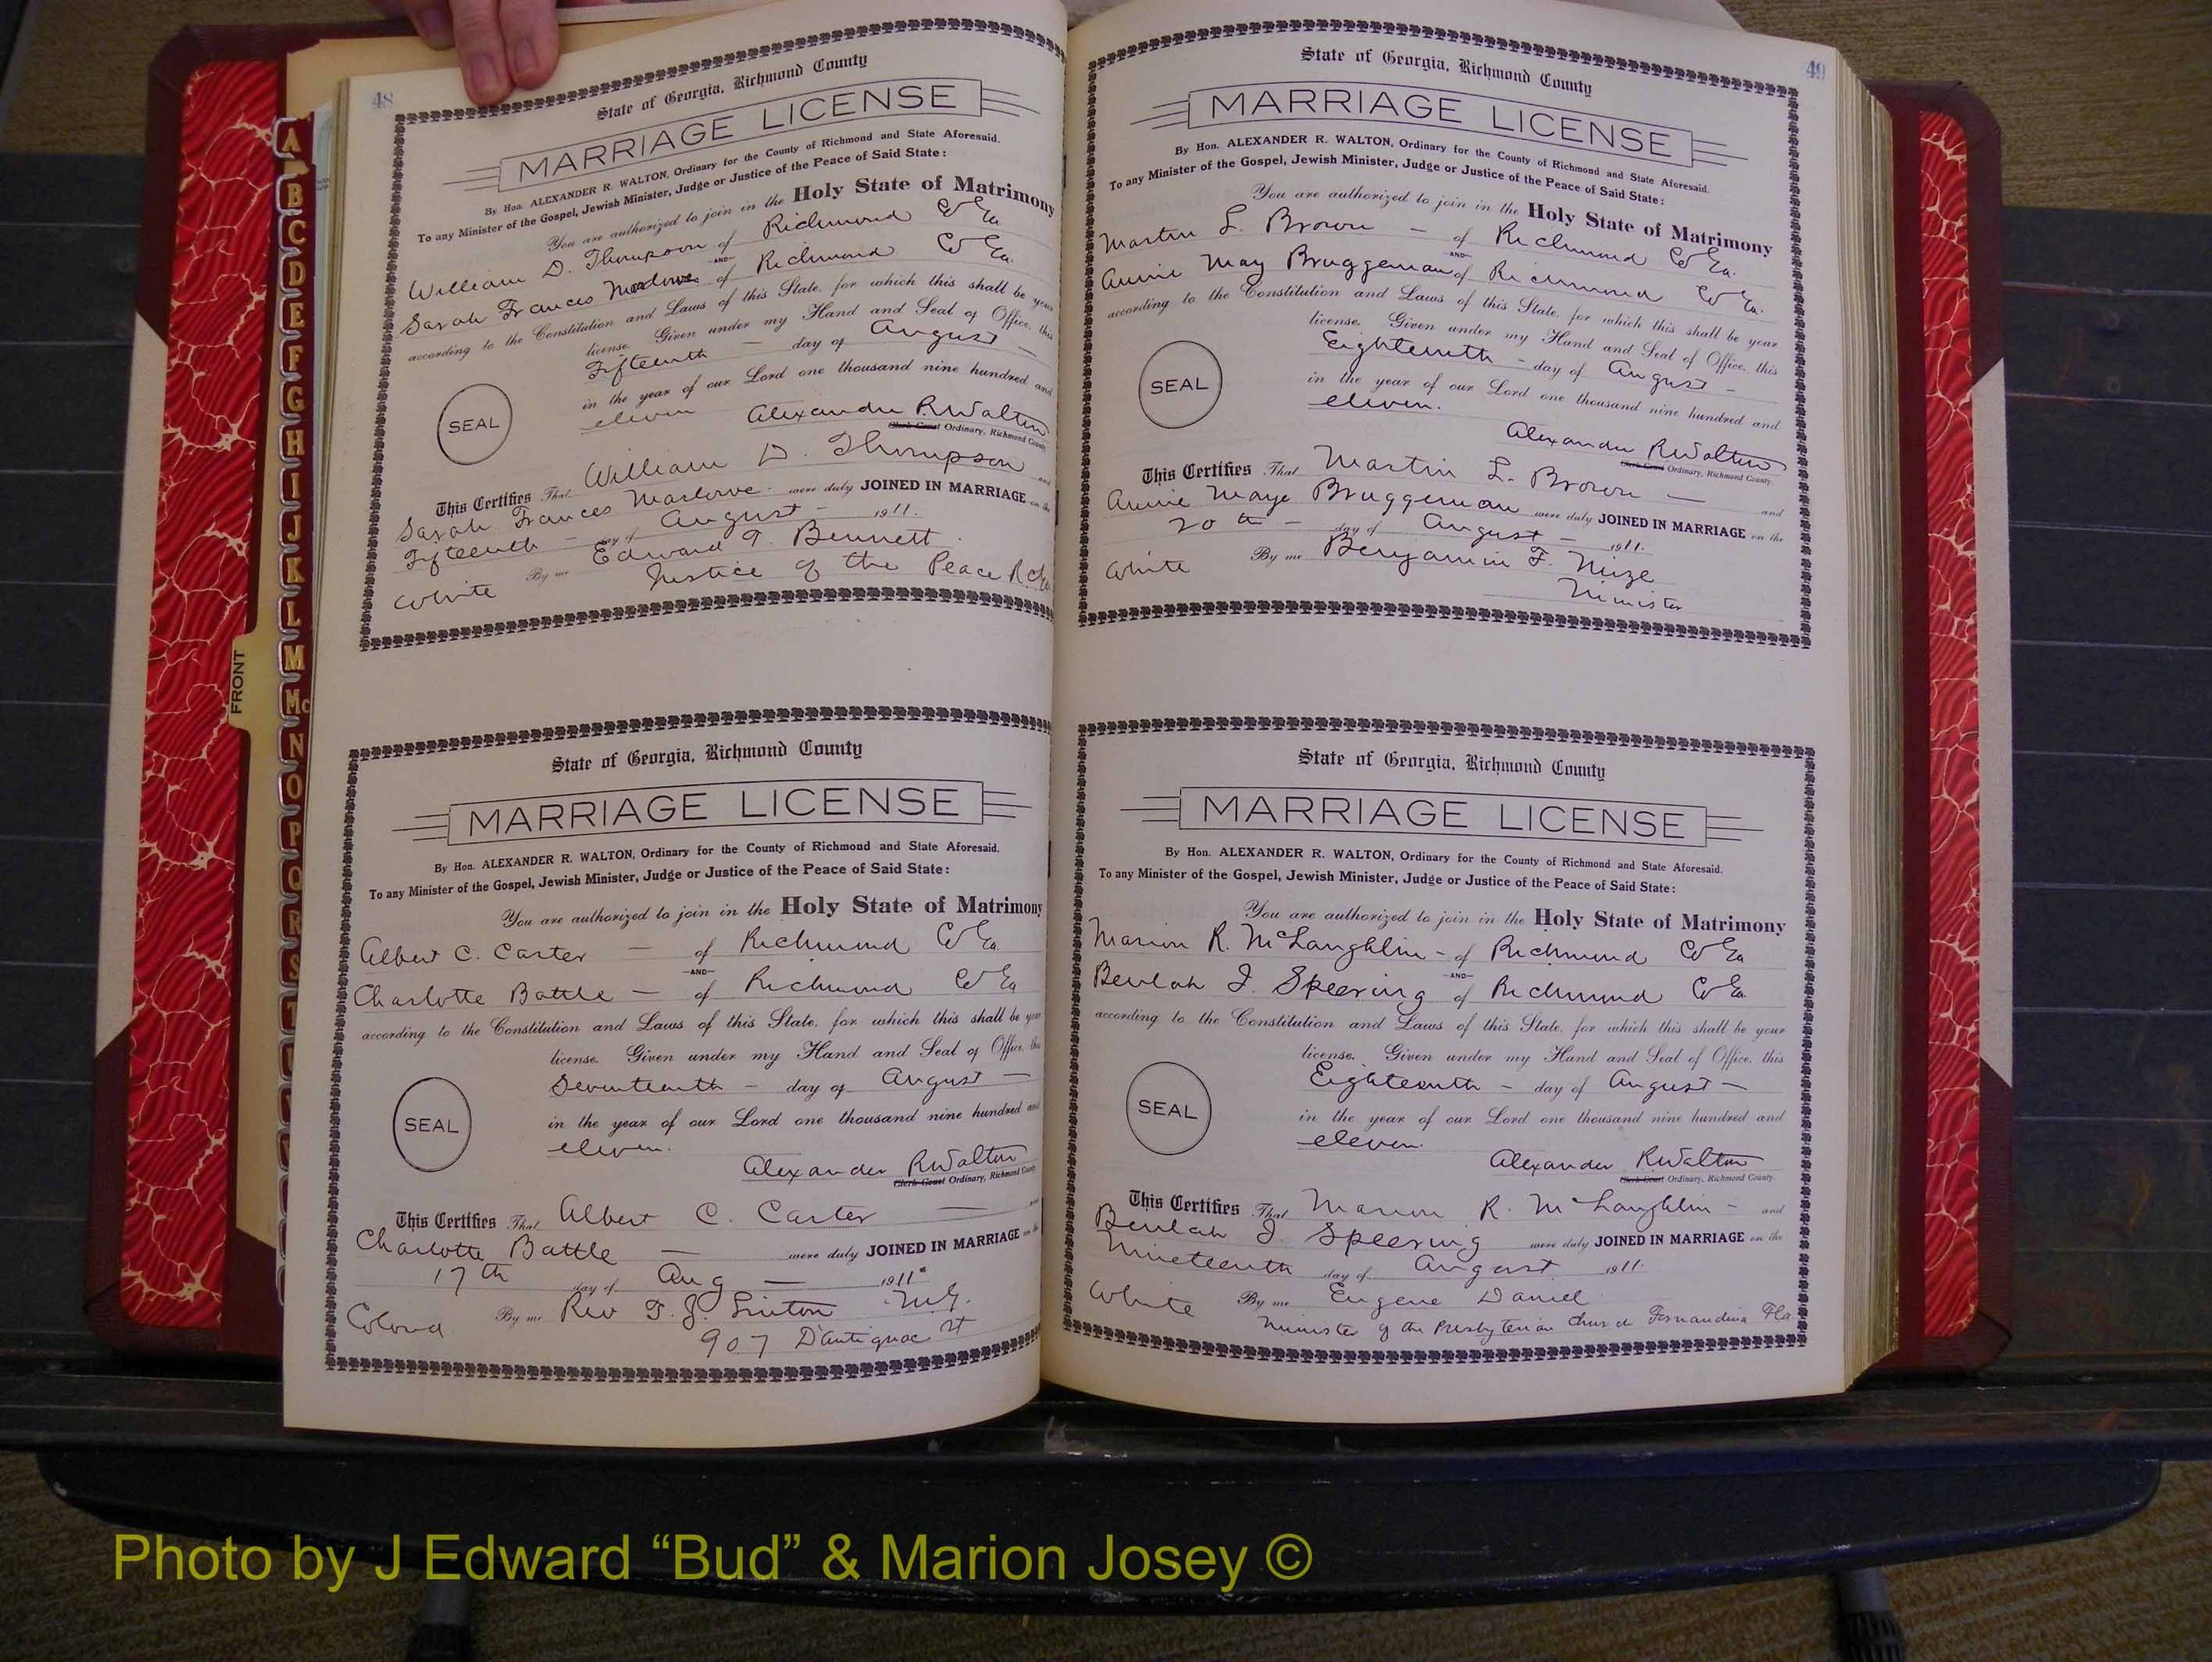 48
State of Georgia, Richmond County
MARRIAGE LICENSE
By Hon. ALEXANDER R. WALTON, Ordinary for the County of Richmond and State Aforesaid.
To any Minister of the Gospel, Jewish Minister, Judge or Justice of the Peace of Said State:
You are authorized to join in the Holy State of Matrimony
William D. Thompson of Richmond Co Ga.
—AND—
Sarah Frances Marlowe of Richmond Co Ga.
according to the Constitution and Laws of this State, for which this shall be your
license. Given under my Hand and Seal of Office, this
Fifteenth — day of August —
in the year of our Lord one thousand nine hundred and
eleven
SEAL
Alexander R Walton
Clerk Court Ordinary, Richmond County
This Certifies That William D. Thompson and
Sarah Frances Marlowe were duly JOINED IN MARRIAGE on the
Fifteenth — day of August — 1911.
By me Edward T. Bennett
White Justice of the Peace R.C. Ga
State of Georgia, Richmond County
MARRIAGE LICENSE
By Hon. ALEXANDER R. WALTON, Ordinary for the County of Richmond and State Aforesaid.
To any Minister of the Gospel, Jewish Minister, Judge or Justice of the Peace of Said State:
You are authorized to join in the Holy State of Matrimony
Albert C. Carter — of Richmond Co Ga.
—AND—
Charlotte Battle — of Richmond Co Ga
according to the Constitution and Laws of this State, for which this shall be your
license. Given under my Hand and Seal of Office, this
Seventeenth — day of August —
in the year of our Lord one thousand nine hundred and
eleven.
SEAL
Alexander R Walton
Clerk Court Ordinary, Richmond County
This Certifies That Albert C. Carter — and
Charlotte Battle — were duly JOINED IN MARRIAGE on the
17th day of Aug — 1911
Colored By me Rev T. J. Linton M.G.
907 D'antignac St
49
State of Georgia, Richmond County
MARRIAGE LICENSE
By Hon. ALEXANDER R. WALTON, Ordinary for the County of Richmond and State Aforesaid.
To any Minister of the Gospel, Jewish Minister, Judge or Justice of the Peace of Said State:
You are authorized to join in the Holy State of Matrimony
Martin L. Brown — of Richmond Co Ga.
—AND—
Annie May Bruggeman of Richmond Co Ga.
according to the Constitution and Laws of this State, for which this shall be your
license. Given under my Hand and Seal of Office, this
Eighteenth — day of August —
in the year of our Lord one thousand nine hundred and
eleven.
SEAL
Alexander R Walton
Clerk Court Ordinary, Richmond County.
This Certifies That Martin L. Brown — and
Annie Maye Bruggeman were duly JOINED IN MARRIAGE on the
20th — day of August — 1911.
White By me Benjamin F. Mize
Minister
State of Georgia, Richmond County
MARRIAGE LICENSE
By Hon. ALEXANDER R. WALTON, Ordinary for the County of Richmond and State Aforesaid.
To any Minister of the Gospel, Jewish Minister, Judge or Justice of the Peace of Said State:
You are authorized to join in the Holy State of Matrimony
Marion R. McLaughlin — of Richmond Co Ga
—AND—
Beulah I. Speering of Richmond Co Ga.
according to the Constitution and Laws of this State, for which this shall be your
license. Given under my Hand and Seal of Office, this
Eighteenth — day of August —
in the year of our Lord one thousand nine hundred and
eleven.
SEAL
Alexander R Walton
Clerk Court Ordinary, Richmond County.
This Certifies That Marion R. McLaughlin — and
Beulah I Speering were duly JOINED IN MARRIAGE on the
Nineteenth day of August 1911.
White By me Eugene Daniel
Minister of the Presbyterian Church Fernandina Fla
FRONT
A
B
C
D
E
F
G
H
I
J
K
L
M
Mc
N
O
P
Q
R
S
T
Photo by J Edward “Bud” & Marion Josey ©